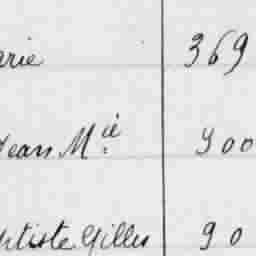 arie 369
Jean M.ie 900
ptiste Gilles 90